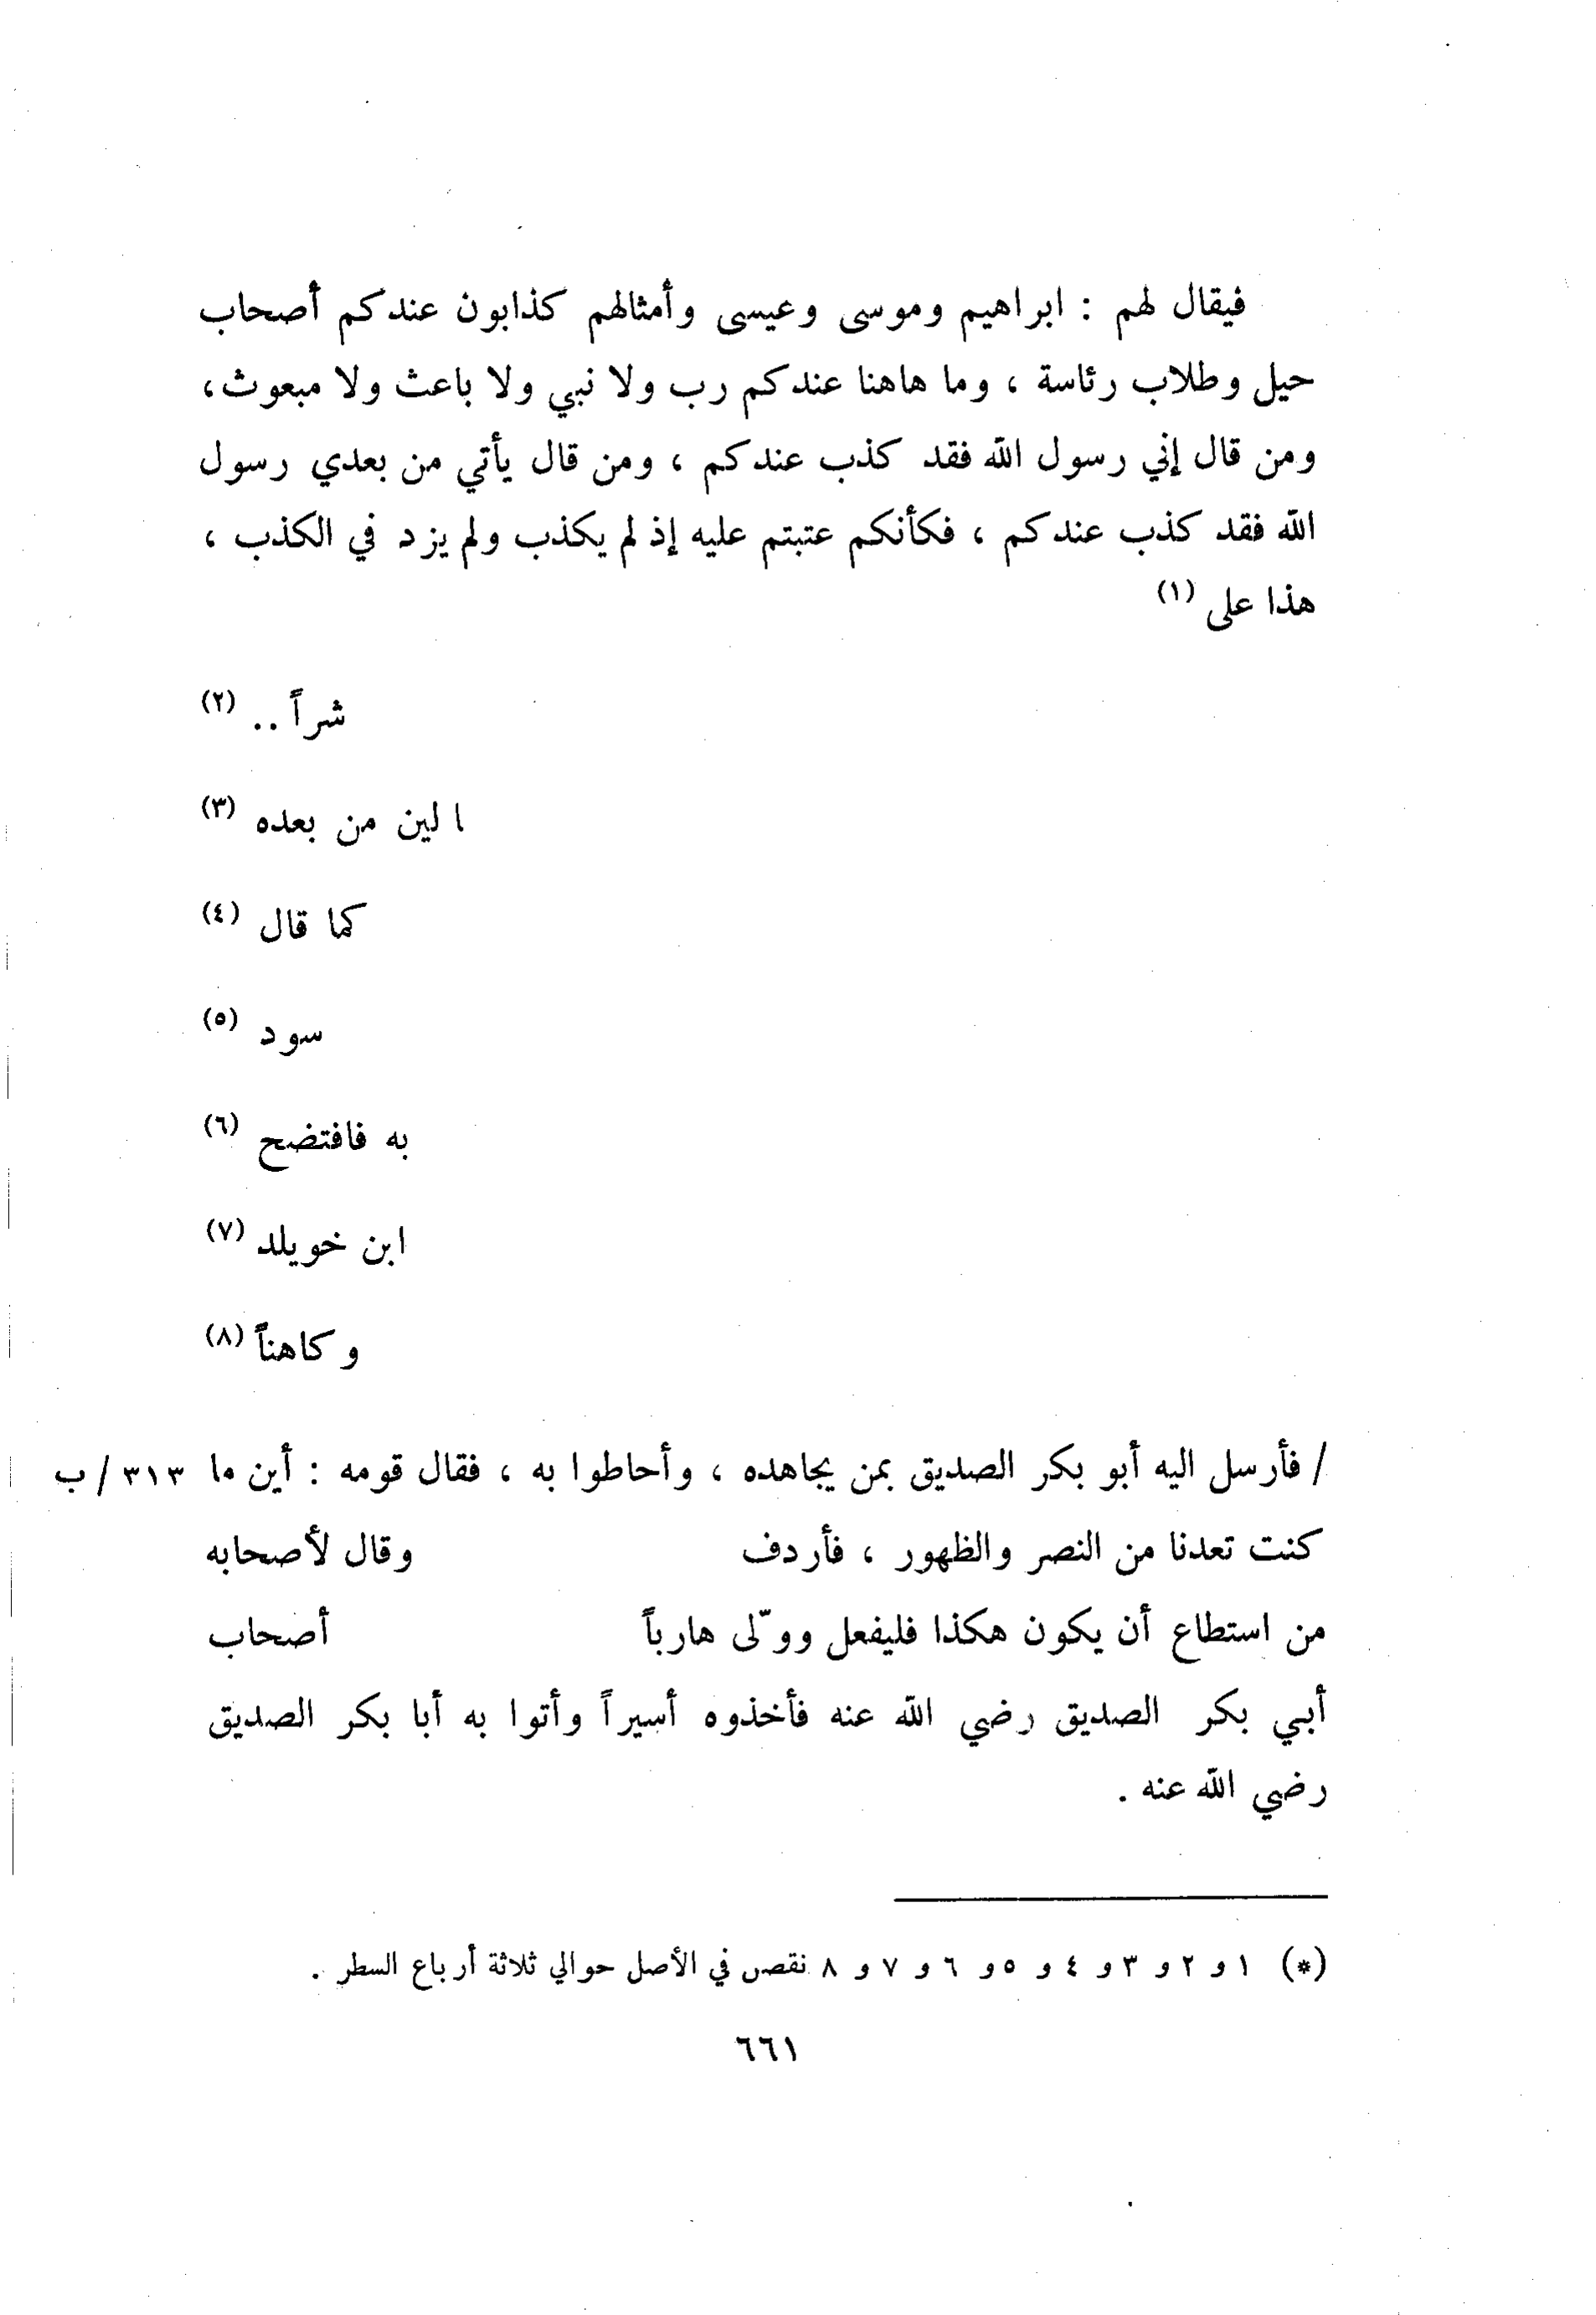 فيقال لهم : ابراهيم وموسى وعيسى وأمثالهم كذابون عندكم أصحاب
حيل وطلاب رئاسة ، وما هاهنا عندكم رب ولا نبي ولا باعث ولا مبعوث ،
ومن قال إني رسول الله فقد كذب عندكم ، ومن قال يأتي من بعدي رسول
الله فقد كذب عندكم ، فكأنكم عتبتم عليه إذ لم يكذب ولم يزد في الكذب ،
هذا على (١)
شراً .. (٢)
ا لين من بعده (٣)
كما قال (٤)
سود (٥)
به فافتضح (٦)
ابن خويلد (٧)
وكاهناً (٨)
/ فأرسل اليه أبو بكر الصديق بمن يجاهده ، وأحاطوا به ، فقال قومه : أين ما ٣١٣ / ب
كنت تعدنا من النصر والظهور ، فأردف وقال لأصحابه
من استطاع أن يكون هكذا فليفعل وولّى هارباً أصحاب
أبي بكر الصديق رضي الله عنه فأخذوه أسيراً وأتوا به أبا بكر الصديق
رضي الله عنه .
(*) ١ و ٢ و ٣ و ٤ و ٥ و ٦ و ٧ و ٨ نقص في الأصل حوالي ثلاثة أرباع السطر .
٦٦١